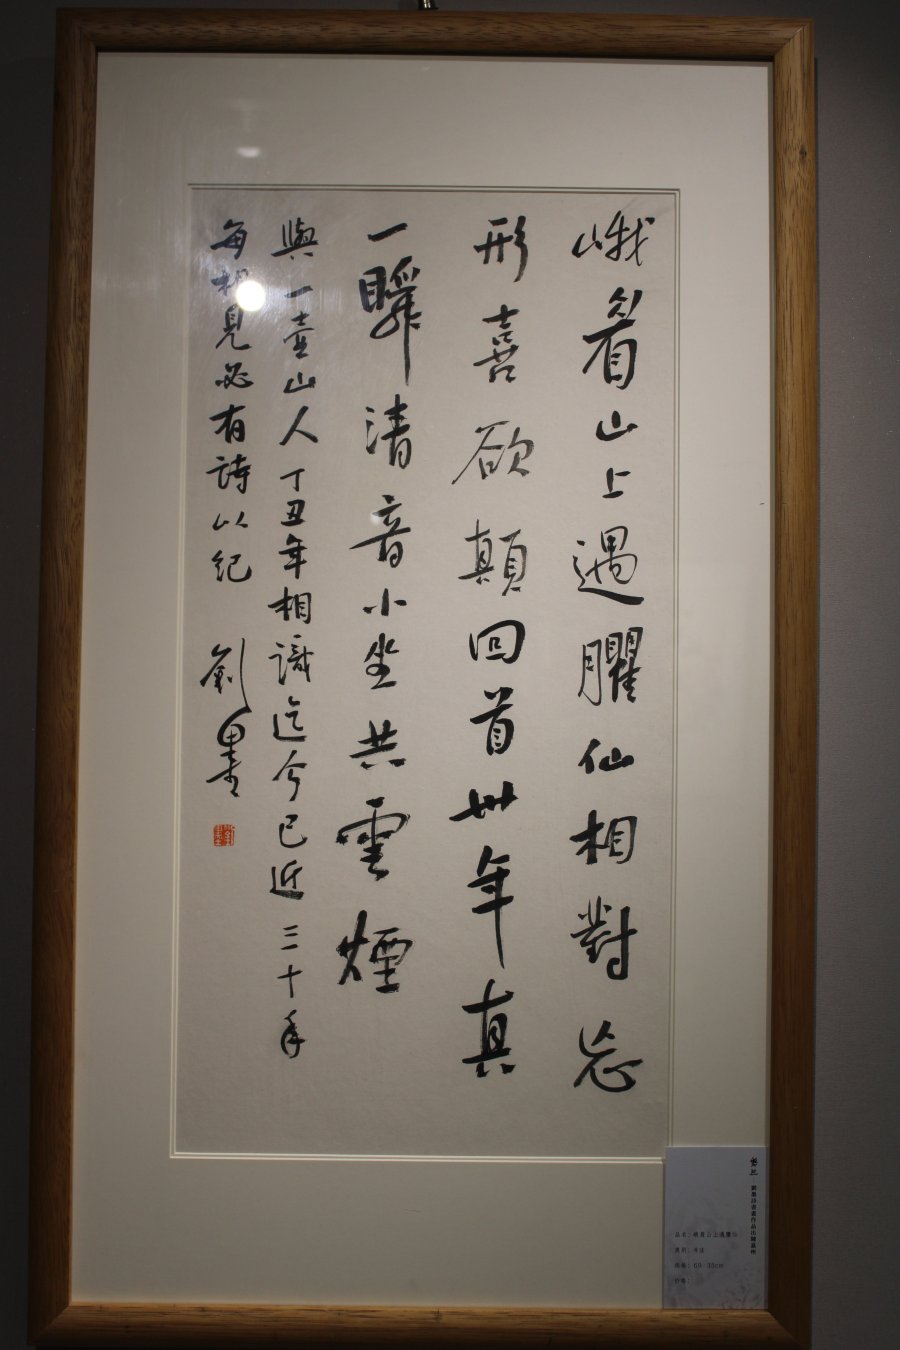 峨眉山上遇臞仙相對忘
形喜欲顛回首卅年真
一瞬清音小坐共雲煙
與一壺山人丁丑年相識迄今已近三十年
每相見必有詩以紀 劉墨
劉墨
品名: 峨眉山上遇臞仙
类别: 书法
规格: 69×35cm
价格: